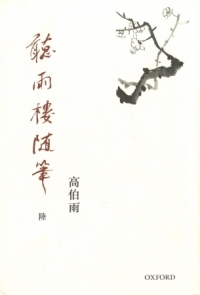 聽雨樓随筆
陸
高伯雨
OXFORD